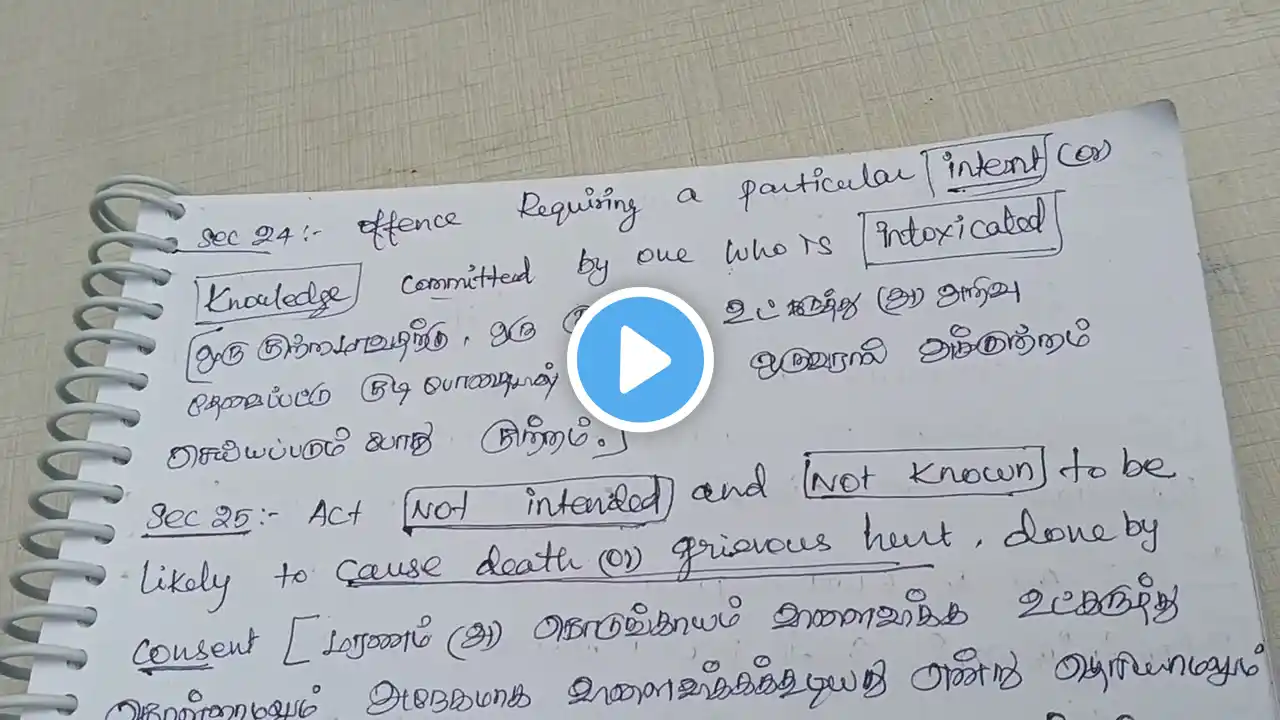 Sec 24:- offence Requiring a particular intent (or)
Knowledge committed by one who is intoxicated
[ஒரு குற்றமாவதற்கு, ஒரு உட்கருத்து (அ) அறிவு
தேவைப்பட்டு குடி போதையில் ஒருவரால் அக்குற்றம்
செய்யப்படும் போது குற்றம்.]
Sec 25:- Act Not intended and Not Known to be
likely to cause death (or) grievous hurt, done by
consent [மரணம் (அ) கொடுங்காயம் விளைவிக்க உட்கருத்து
கொண்டிராமலும் விளைவிக்கக்கூடியது என்று தெரியாமலும்